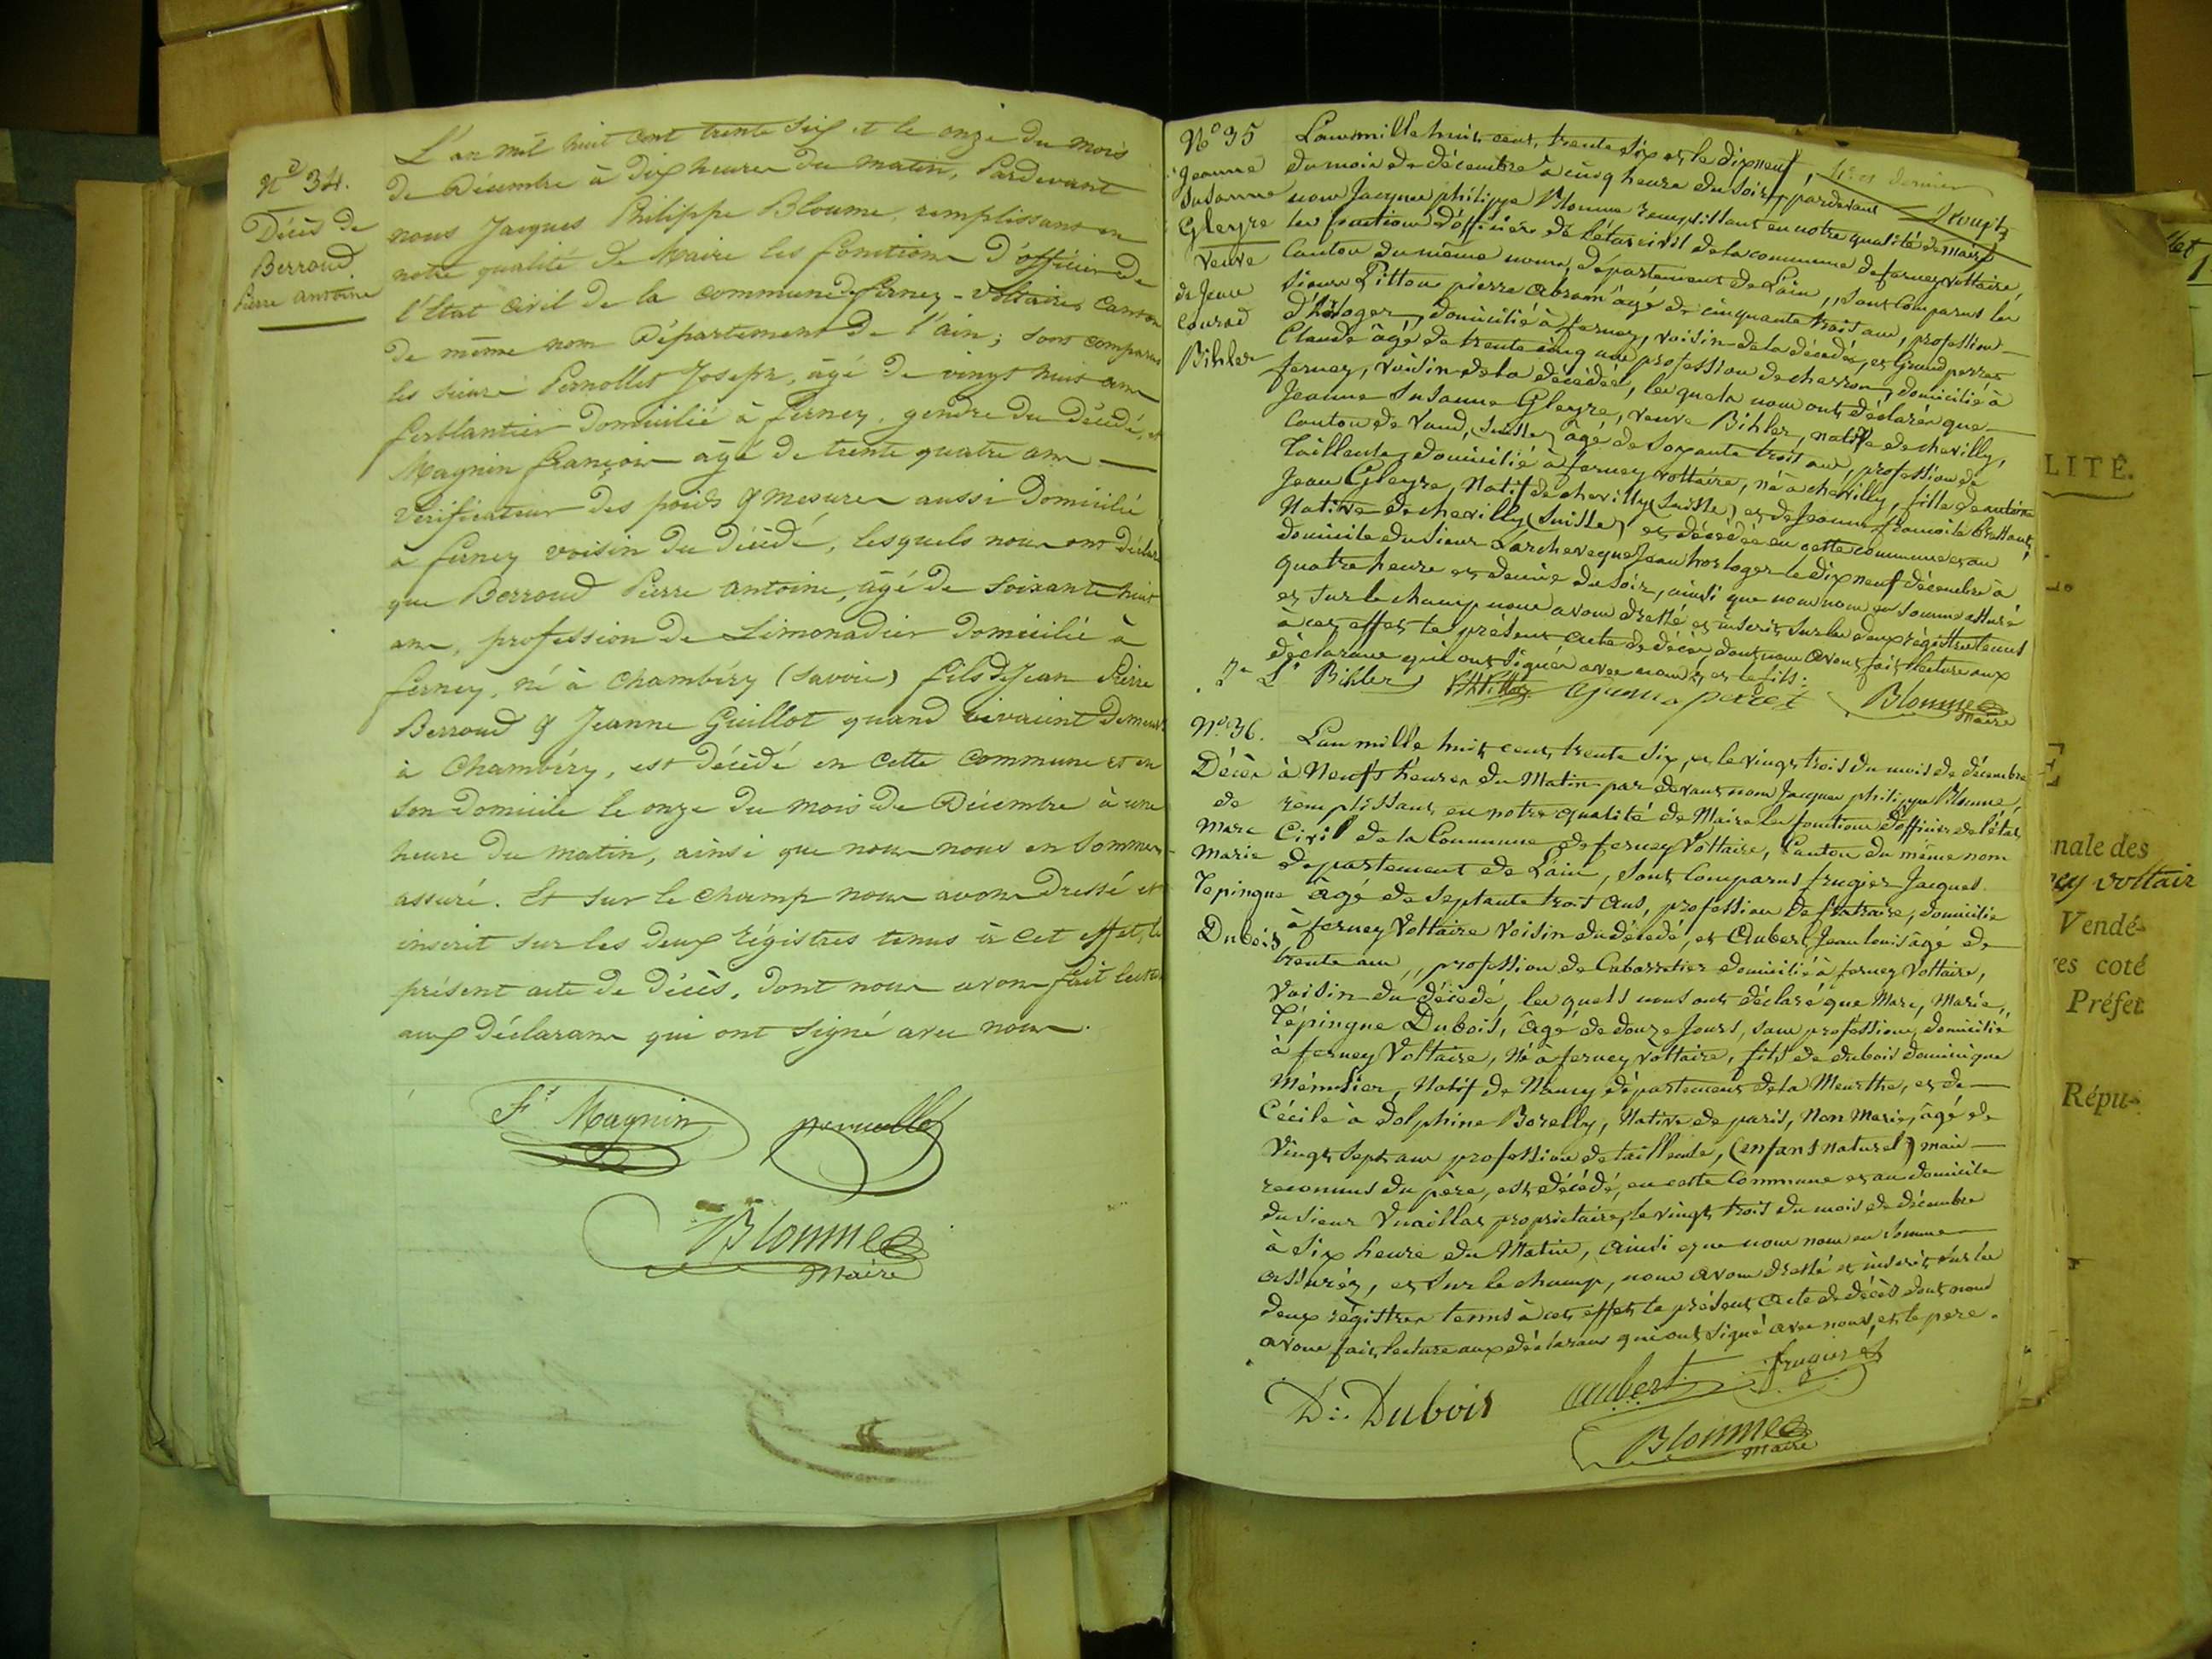 N° 34.
Décès de
Berroud
Pierre Antoine
L'an mil huit cent trente six et le onze du mois
de Décembre à dix heures du matin, Pardevant
nous Jacques Philippe Bloume, remplissant en
notre qualité de Maire les fonctions d'officier de
l'Etat Civil de la commune de Ferney-Voltaire, Canton
de même nom Département de l'ain; sont comparus
les sieurs Pernollet Joseph, âgé de vingt huit ans
ferblantier Domicilié à Ferney, gendre du Décédé, et
Magnin françois âgé de trente quatre ans
vérificateur des poids & mesures aussi Domicilié
à ferney voisin du Décédé, lesquels nous ont déclaré
que Berroud Pierre Antoine, âgé de soixante huit
ans, profession de Limonadier Domicilié à
ferney, né à Chambéry (Savoie) fils de Jean Pierre
Berroud & Jeanne Guillot quand vivaient Demeurt
à Chambéry, est décédé en cette commune et en
son Domicile le onze du mois de Décembre à une
heure du matin, ainsi que nous nous en sommes
assuré. Et sur le champ nous avons Dressé et
inscrit sur les deux régistres tenus à cet effet, le
présent acte de décès, dont nous avons fait lecture
aux Déclarans qui ont signé avec nous.
Fs Magnin
pernollet
Bloume
Maire
N° 35
Jeanne
Susanne
Gleyre
Veuve
de Jean
Conrad
Bihler
L'an mille huit cent trente six et le dix neuf,
du mois de décembre à cinq heure du soir, pardevant
nous Jacques philippe Bloume remplissant en notre qualité de maire
les fonctions d'officier de l'état civil de la commune de ferney voltaire,
Canton du même nom, département de L'ain, sont comparus les
sieurs Pittou pierre abram âgé de cinquante trois ans, profession
d'horloger, domicilié à ferney, voisin de la décédée, et Grand perret
Claude âgé de trente cinq ans profession de charron, domicilié à
ferney, voisin de la décédée, les quels nous ont déclarés que
Jeanne Susanne Gleyre, veuve Bihler, native de chevilly,
Canton de Vaud, (Suisse) âgé de soixante trois ans, profession de
Tailleuse, domicilié à ferney voltaire, né à chevilly, fille de antoine
Jean Gleyre, Natif de chevilly (Suisse) et de Jeanne françoise
Native de chevilly (Suisse) et décédée en cette commune et au
domicile du sieur Larcheveque Jean horloger le dix neuf décembre à
quatre heure et demie du soir, ainsi que nous nous en somme assuré
et sur le champ nous avons dressé et inscrit sur les deux régistres tenus
à cet effet le présent acte de décès, dont nous avons fait lecture aux
déclarans qui ont signés avec nous et le fils.
Bihler
Bloume
Maire
N° 36.
Décès
de
Marc
Marie
Tepingue
Dubois
L'an mille huit cent trente six, et le vingt trois du mois de décembre
à Neufs heures du Matin par devant nous Jacques philippe Bloume,
remplissant en notre qualité de Maire les fonctions d'officier de l'état
Civil de la Commune de ferney Voltaire, Canton du même nom
département de L'ain, sont comparus frugier Jacques
âgé de septante trois ans, profession de, domicilié
à ferney Voltaire Voisin du décédé, et Aubert Jean louis âgé de
trente ans, profession de Cabarretier domicilié à ferney Voltaire,
Voisin du décédé, les quels nous ont déclaré que Marc, Marie,
Tépingue Dubois, âgé de douze Jours, sans profession, domicilié
à ferney Voltaire, Né à ferney voltaire, fils de dubois dominique
Menusier, Natif de Nancy département de la Meurthe, et de
Cécile à dolphine Borelly, Native de paris, Non Marié, âgé de
Vingt sept ans profession de tailleuse, (enfant naturel) mais
reconnus du père, est décédé, en cette Commune et au domicile
du sieur Vuaillas propriétaire, le vingt trois du mois de décembre
à six heure du Matin, ainsi que nous nous en somme
assurés, et sur le champ, nous avons dressé et inscrit sur les
deux régistres tenus à cet effet le présent acte de décès dont nous
avons fait lecture aux déclarans qui ont signé avec nous, et le père.
D. Dubois
aubert
frugier
Bloume
Maire
LITÉ.
nale des
ney voltair
Vendé-
res coté
Préfet
Répu-